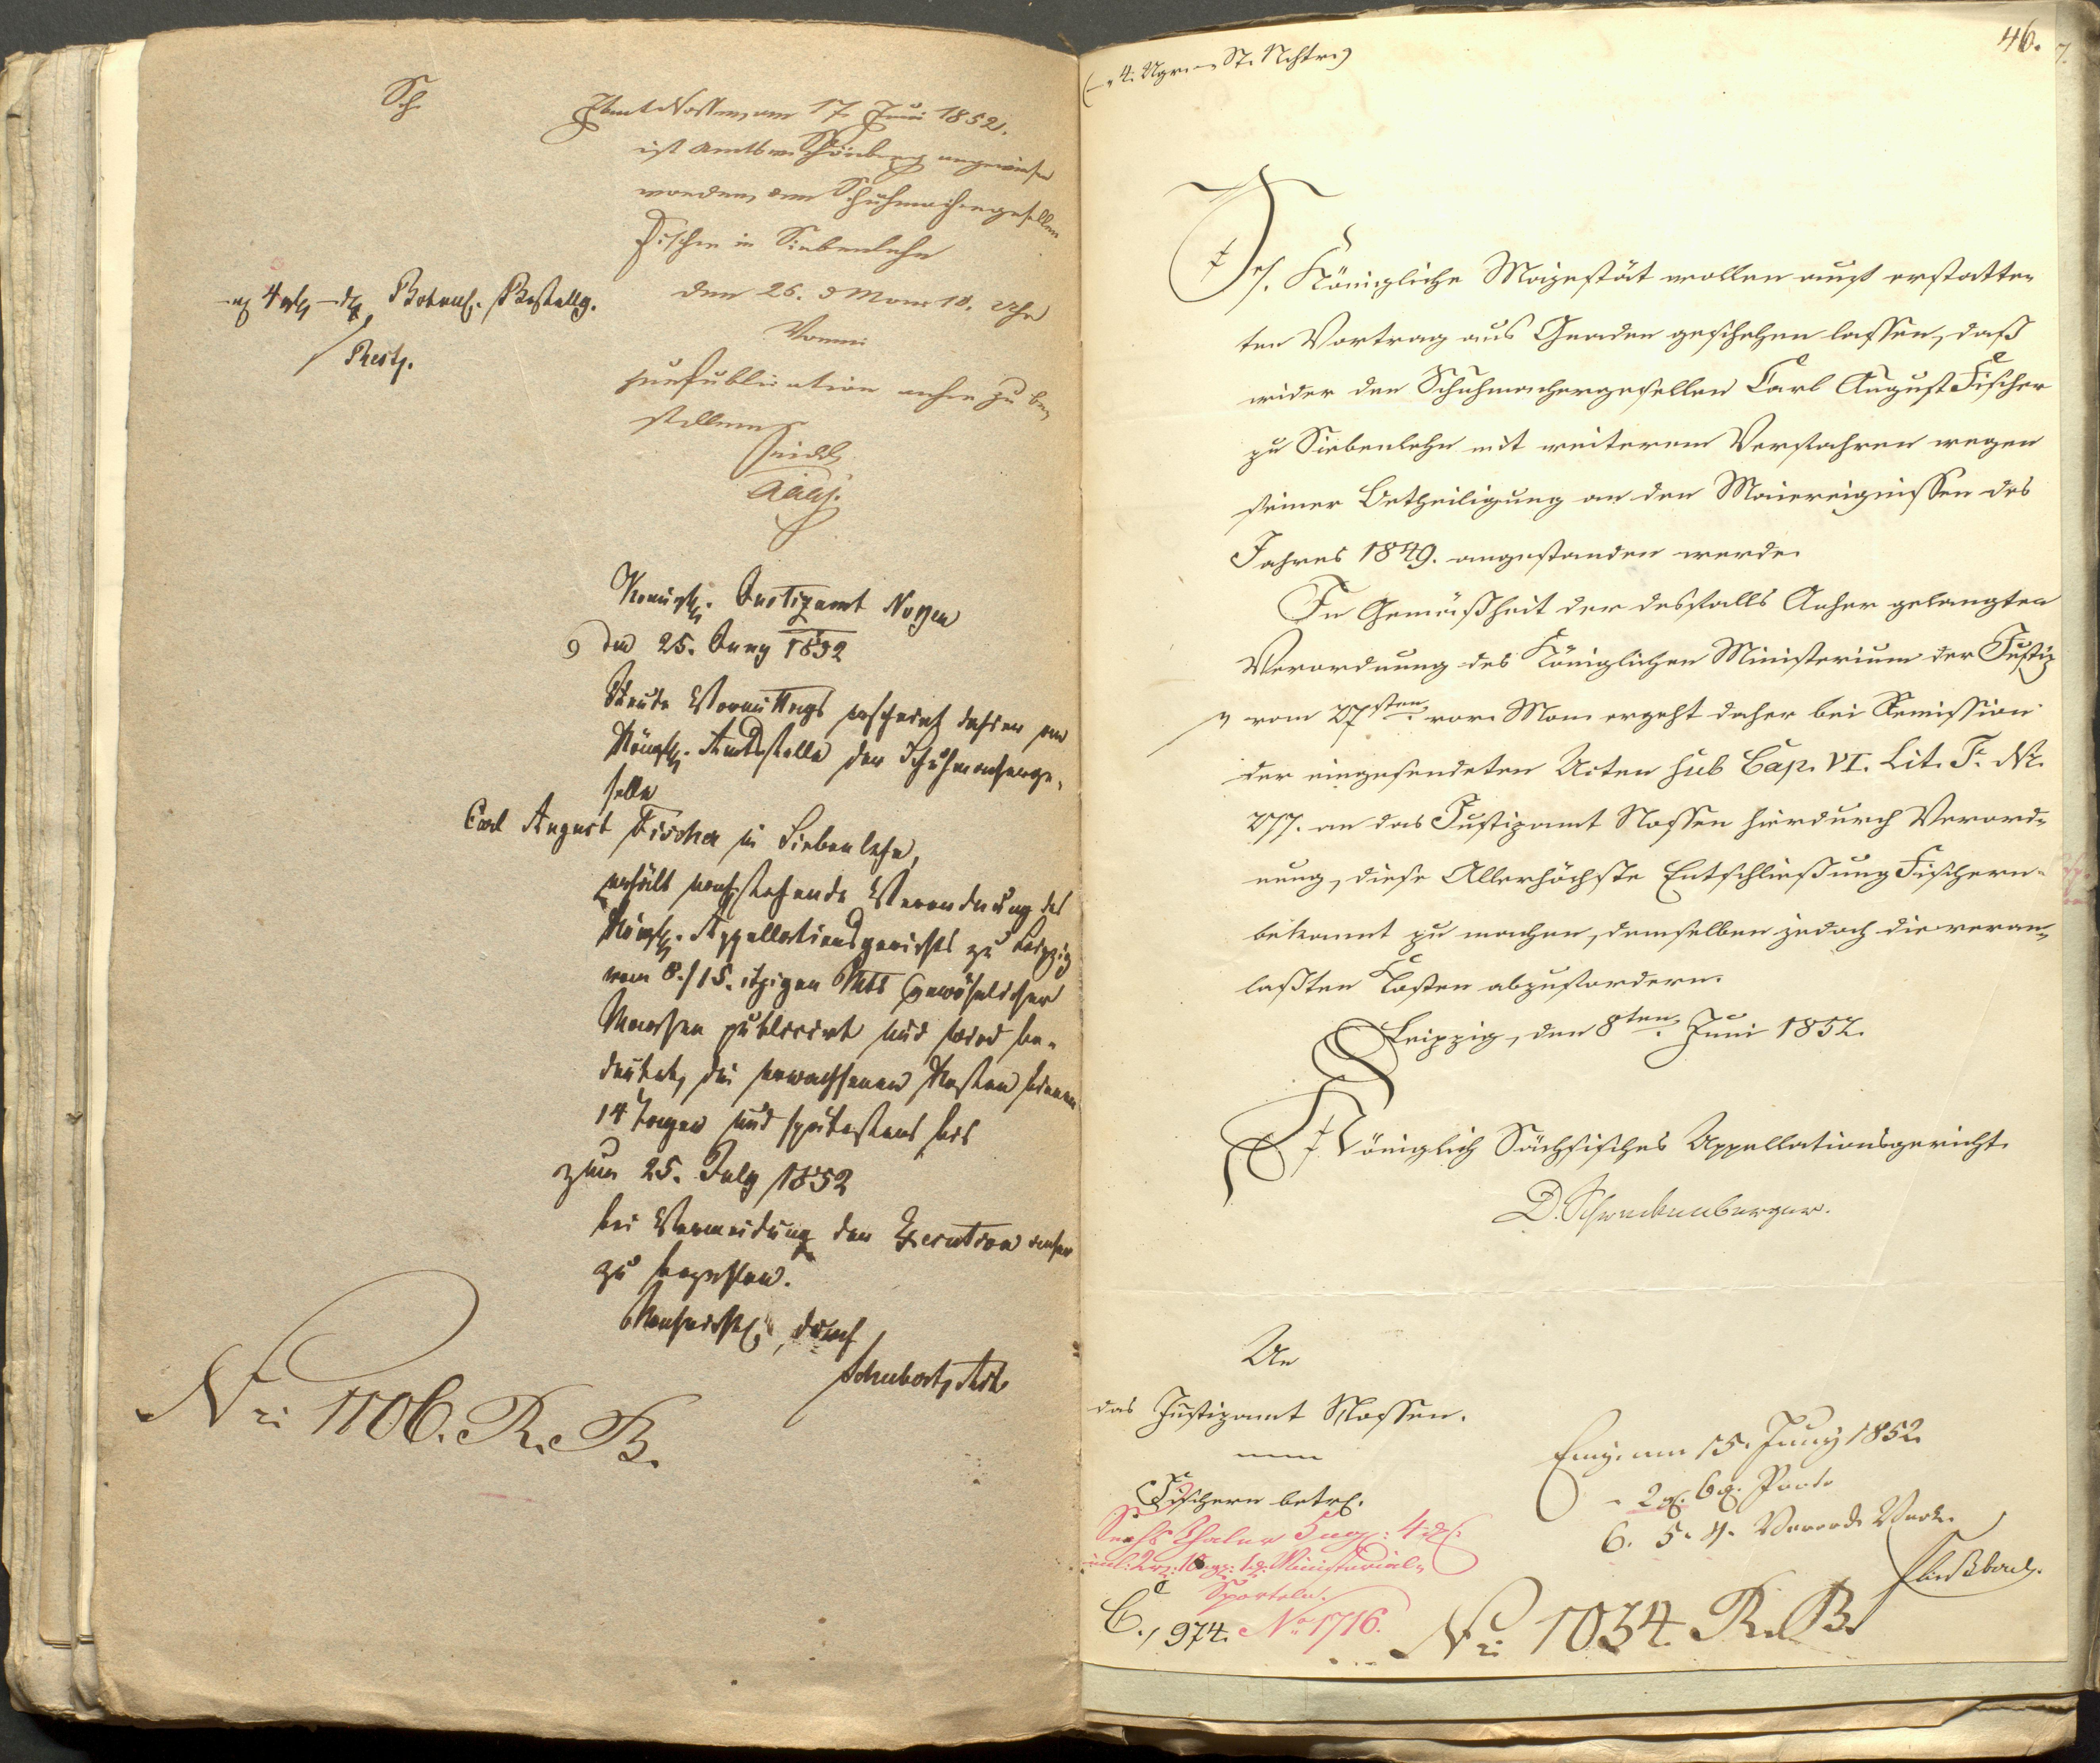 Sch.
Amt Nossen, am 17. Juni 1852.
ist Amtsw. Schönberg angewiesen
worden, den Schuhmachergesellen
Fischer in Siebenlehn
den 25. d. Mon. 10. Uhr
Vorm.
zur Publication anher zu be-
stellen.
4 Botenl. Bestellg.
Königl. Justizamt Nossen
den 25. Juny 1852
Heute Vormittags erscheint dahier an
Königl. Amtsstelle der Schuhmacherge-
selle
Carl August Fischer in Siebenlehn,
erhält vorstehende Verordnung des
Königl. Appellationsgerichts zu Leipzig
vom 8./15. itzigen Mts gewöhnlicher
Maasen publicirt und wird be-
deutet, die erwachsenen Kosten binnen
14 Tagen und spätestens bis
zum 25. July 1852
bei Vermeidung der Execution anher
zu bezahlen.
Nachrichtl. durch
Schubert, Act.
Nr. 1106. R. B.
46.
Se. Königliche Majestät wollen auf erstatte-
ten Vortrag aus Gnaden geschehen lassen, daß
wider den Schuhmachergesellen Carl August Fischer
zu Siebenlehn mit weiterem Verfahren wegen
seiner Betheiligung an den Maiereignissen des
Jahres 1849. angestanden werde.
In Gemäßheit der desfalls Anher gelangten
Verordnung des Königlichen Ministerium der Justiz
vom 27sten vor. Mon. ergeht daher bei Remission
der eingesendeten Acten sub Cap. VI. Lit. F. Nr.
277. an das Justizamt Nossen hierdurch Verord-
nung, diese Allerhöchste Entschließung Fischern
bekannt zu machen, demselben jedoch die veran-
laßten Kosten abzufordern.
Leipzig, den 8ten Juni 1852.
Königlich Sächsisches Appellationsgericht.
D. Schneckenburger.
An
das Justizamt Nossen.
Fischern betr.
Sechs Thaler 5 ngr. 4 d.
Ministerial-
Sporteln.
C. 974. No. 1716.
Eing. am 15. Juny 1852.
2 6 Porto
6. 5. 4. Verord.
Nr. 1034. R. B.